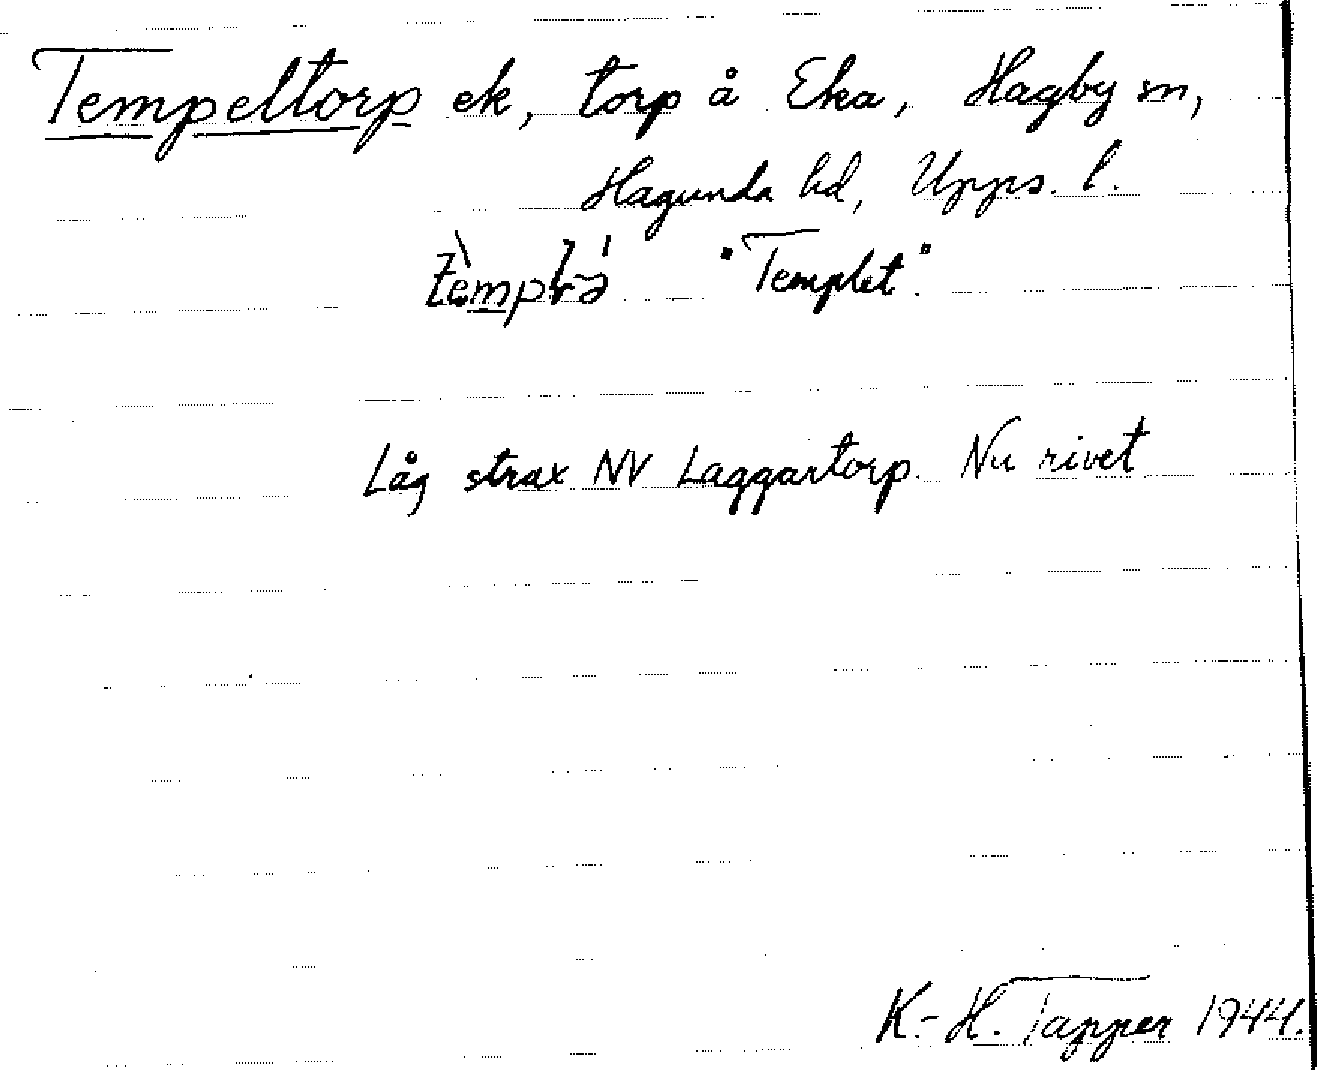 Tempeltorp ek, torp å Eka, Hagby sn,
Hagunda hd, Upps. l.
"Templet".
Låg strax NV Laggartorp. Nu rivet
K.-H. Tapper 1944.